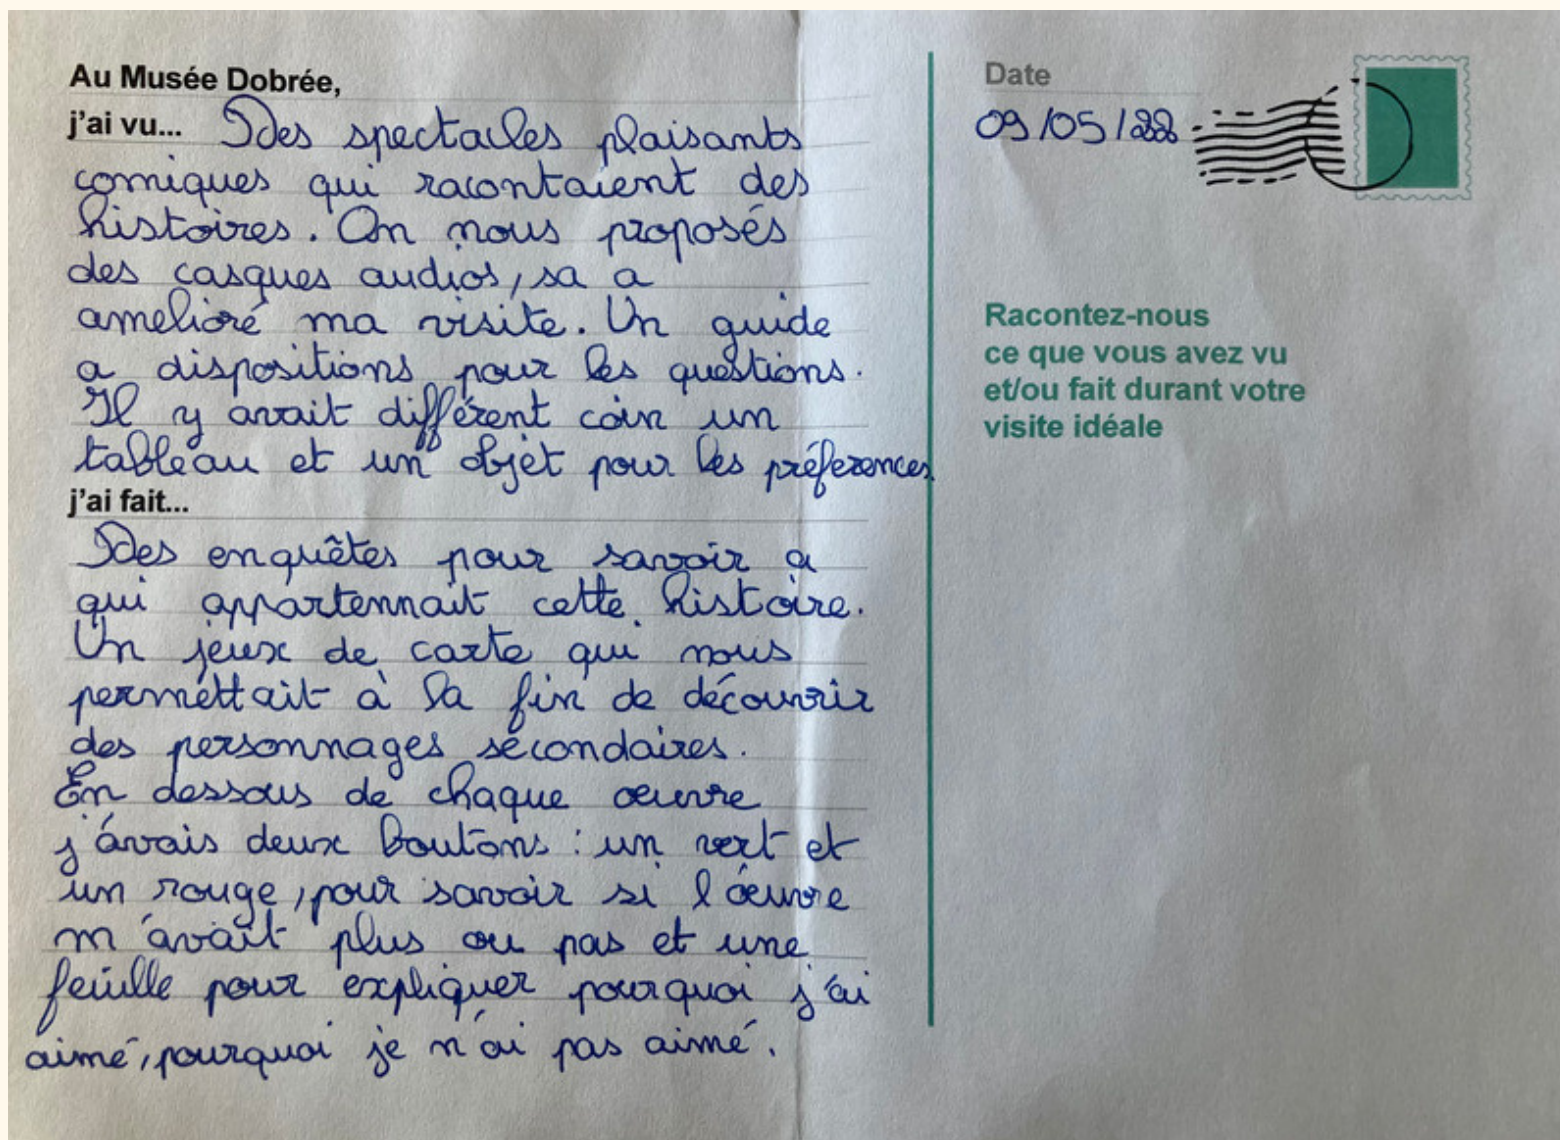 Au Musée Dobrée,
j'ai vu... Des spectacles plaisants
comiques qui racontaient des
histoires. On nous proposés
des casques audios, sa a
amelioré ma visite. Un guide
a dispositions pour les questions.
Il y avait différent coin un
tableau et un objet pour les préferences.
j'ai fait...
Des enquêtes pour savoir a
qui appartennait cette histoire.
Un jeux de carte qui nous
permettait à la fin de découvrir
des personnages secondaires.
En dessous de chaque oeuvre
j'avais deux boutons : un vert et
un rouge, pour savoir si l'oeuvre
m'avait plus ou pas et une
feuille pour expliquer pourquoi j'ai
aimé, pourquoi je n'ai pas aimé.
Date
09/05/22
Racontez-nous
ce que vous avez vu
et/ou fait durant votre
visite idéale